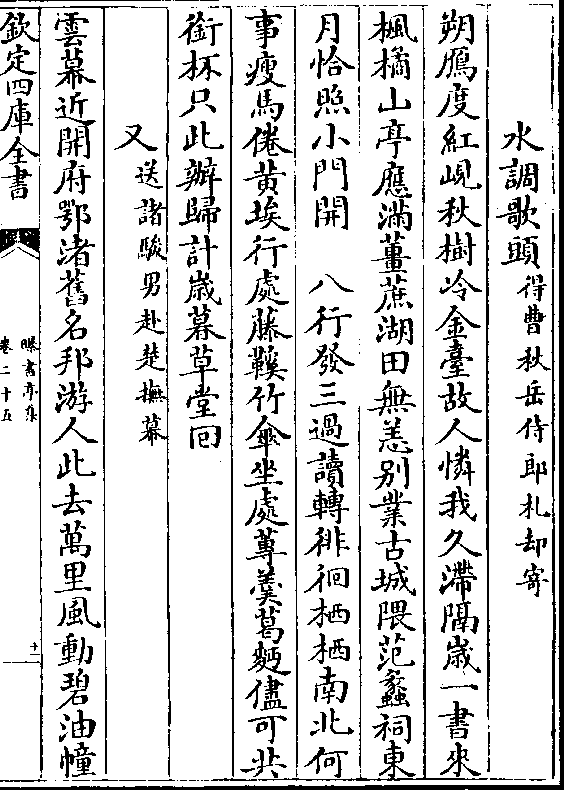 水調歌頭 得曹秋岳侍郎札却寄
朔鴈度紅峴秋樹冷金臺故人憐我久滯隔歲一書來
楓橘山亭應滿薑蔗湖田無恙别業古城隈范蠡祠東
月恰照小門開　八行發三過讀轉徘徊栖栖南北何
事瘦馬倦黄埃行處藤鞵竹傘坐處蓴羮葛麪儘可共
銜杯只此辦歸計歲暮草堂囘
又 送諸駿男赴楚撫幕
雲幕近開府鄂渚舊名邦游人此去萬里風動碧油幢
欽定四庫全書
曝書亭集
卷二十五
十一